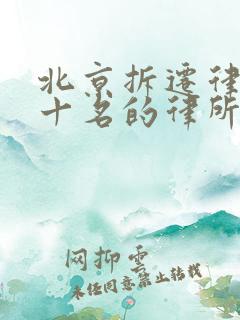 北京拆迁律
十名的律所
网抑云
未经同意禁止转载